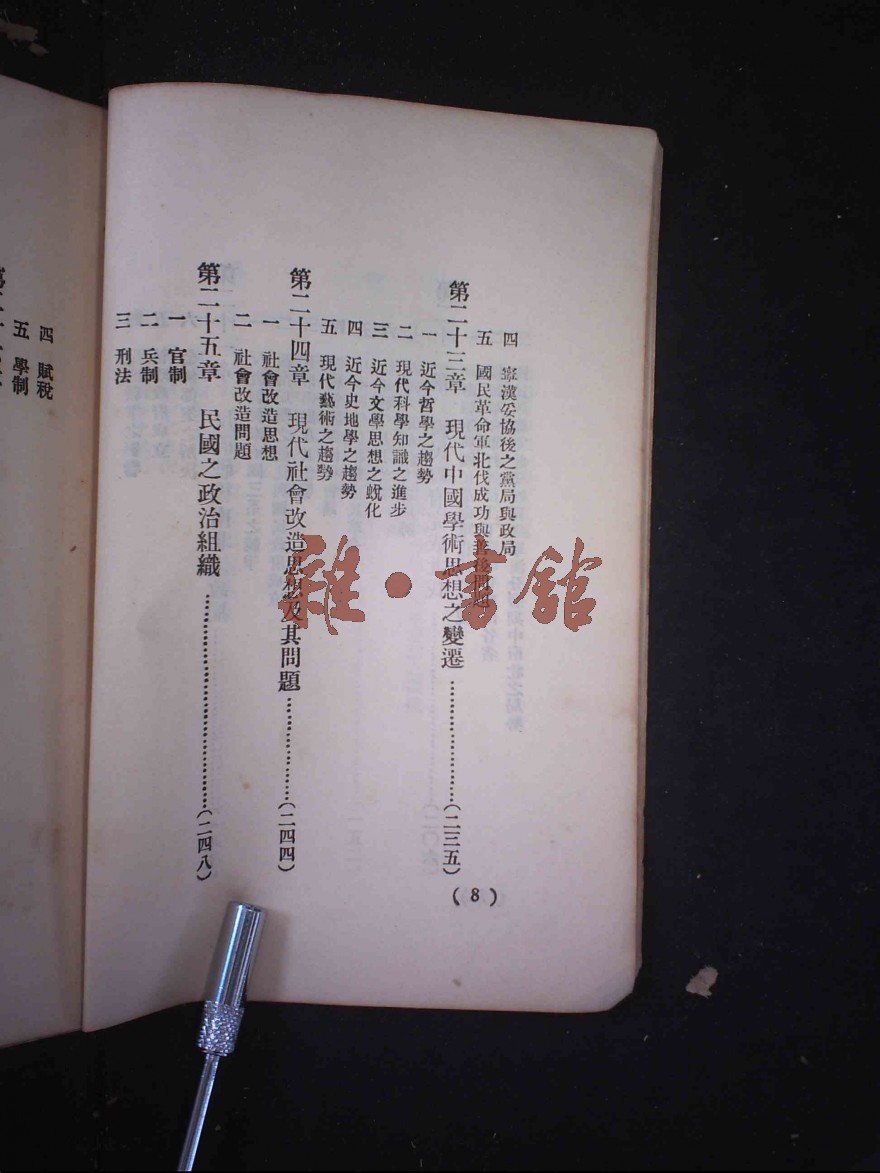 四 寧漢妥協後之黨局與政局
五 國民革命軍北伐成功與善後問題
第二十三章 現代中國學術思想之變遷……………………(二三五)
一 近今哲學之趨勢
二 現代科學知識之進步
三 近今文學思想之蛻化
四 近今史地學之趨勢
五 現代藝術之趨勢
第二十四章 現代社會改造思想及其問題…………………(二四四)
一 社會改造思想
二 社會改造問題
第二十五章 民國之政治組織………………………………(二四八)
一 官制
二 兵制
三 刑法
(8)
四 賦稅
五 學制
雜·書館